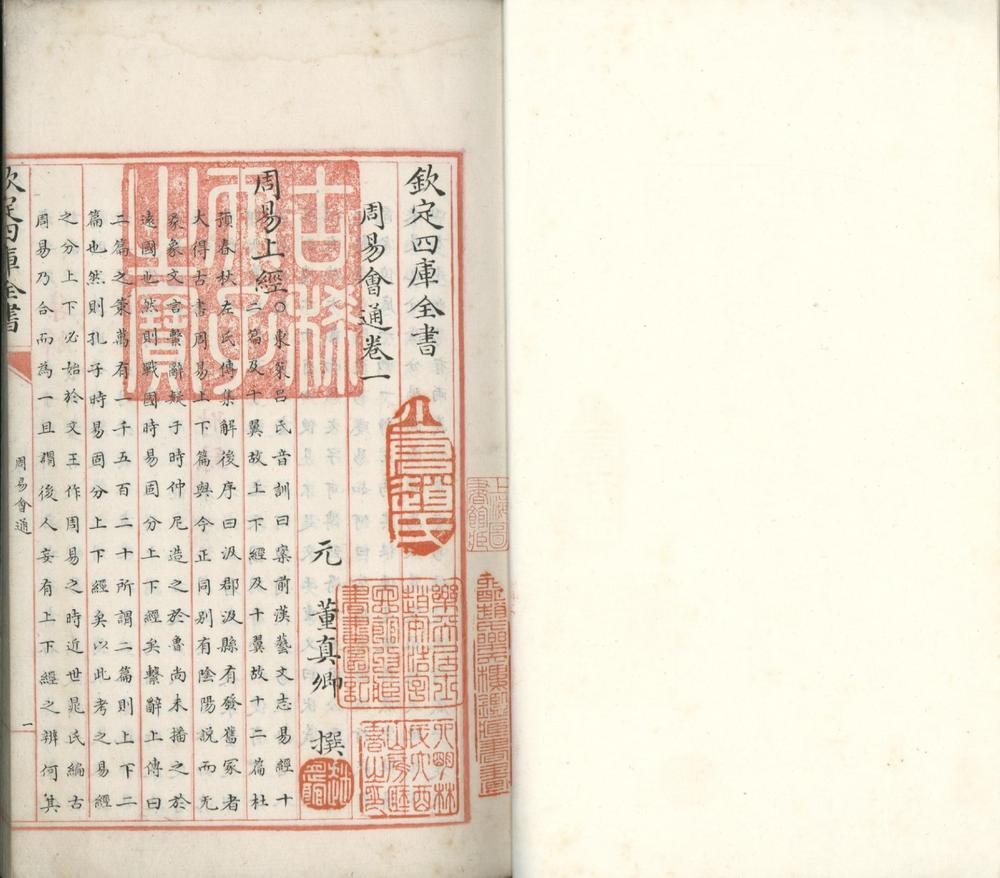 欽定四庫全書
周易會通卷一
元 董真卿 撰
周易上經 ○東萊呂氏音訓曰案前漢藝文志易經十
二篇及十翼故上下經及十翼故十二篇杜
預春秋左氏傳集解後序曰汲郡汲縣有發舊冢者
大得古書周易上下篇與今正同別有陰陽說而无
彖象文言繫辭疑于時仲尼造之於魯尚未播之於
遠國也然則戰國時易固分上下經矣繫辭上傳曰
二篇之策萬有一千五百二十所謂二篇則上下二
篇也然則孔子時易固分上下經矣以此考之易經
之分上下必始於文王作周易之時近世晁氏編古
周易乃合而為一且謂後人妄有上下經之辨何其
欽定四庫全書
周易會通
一
古稀
天子
之寶